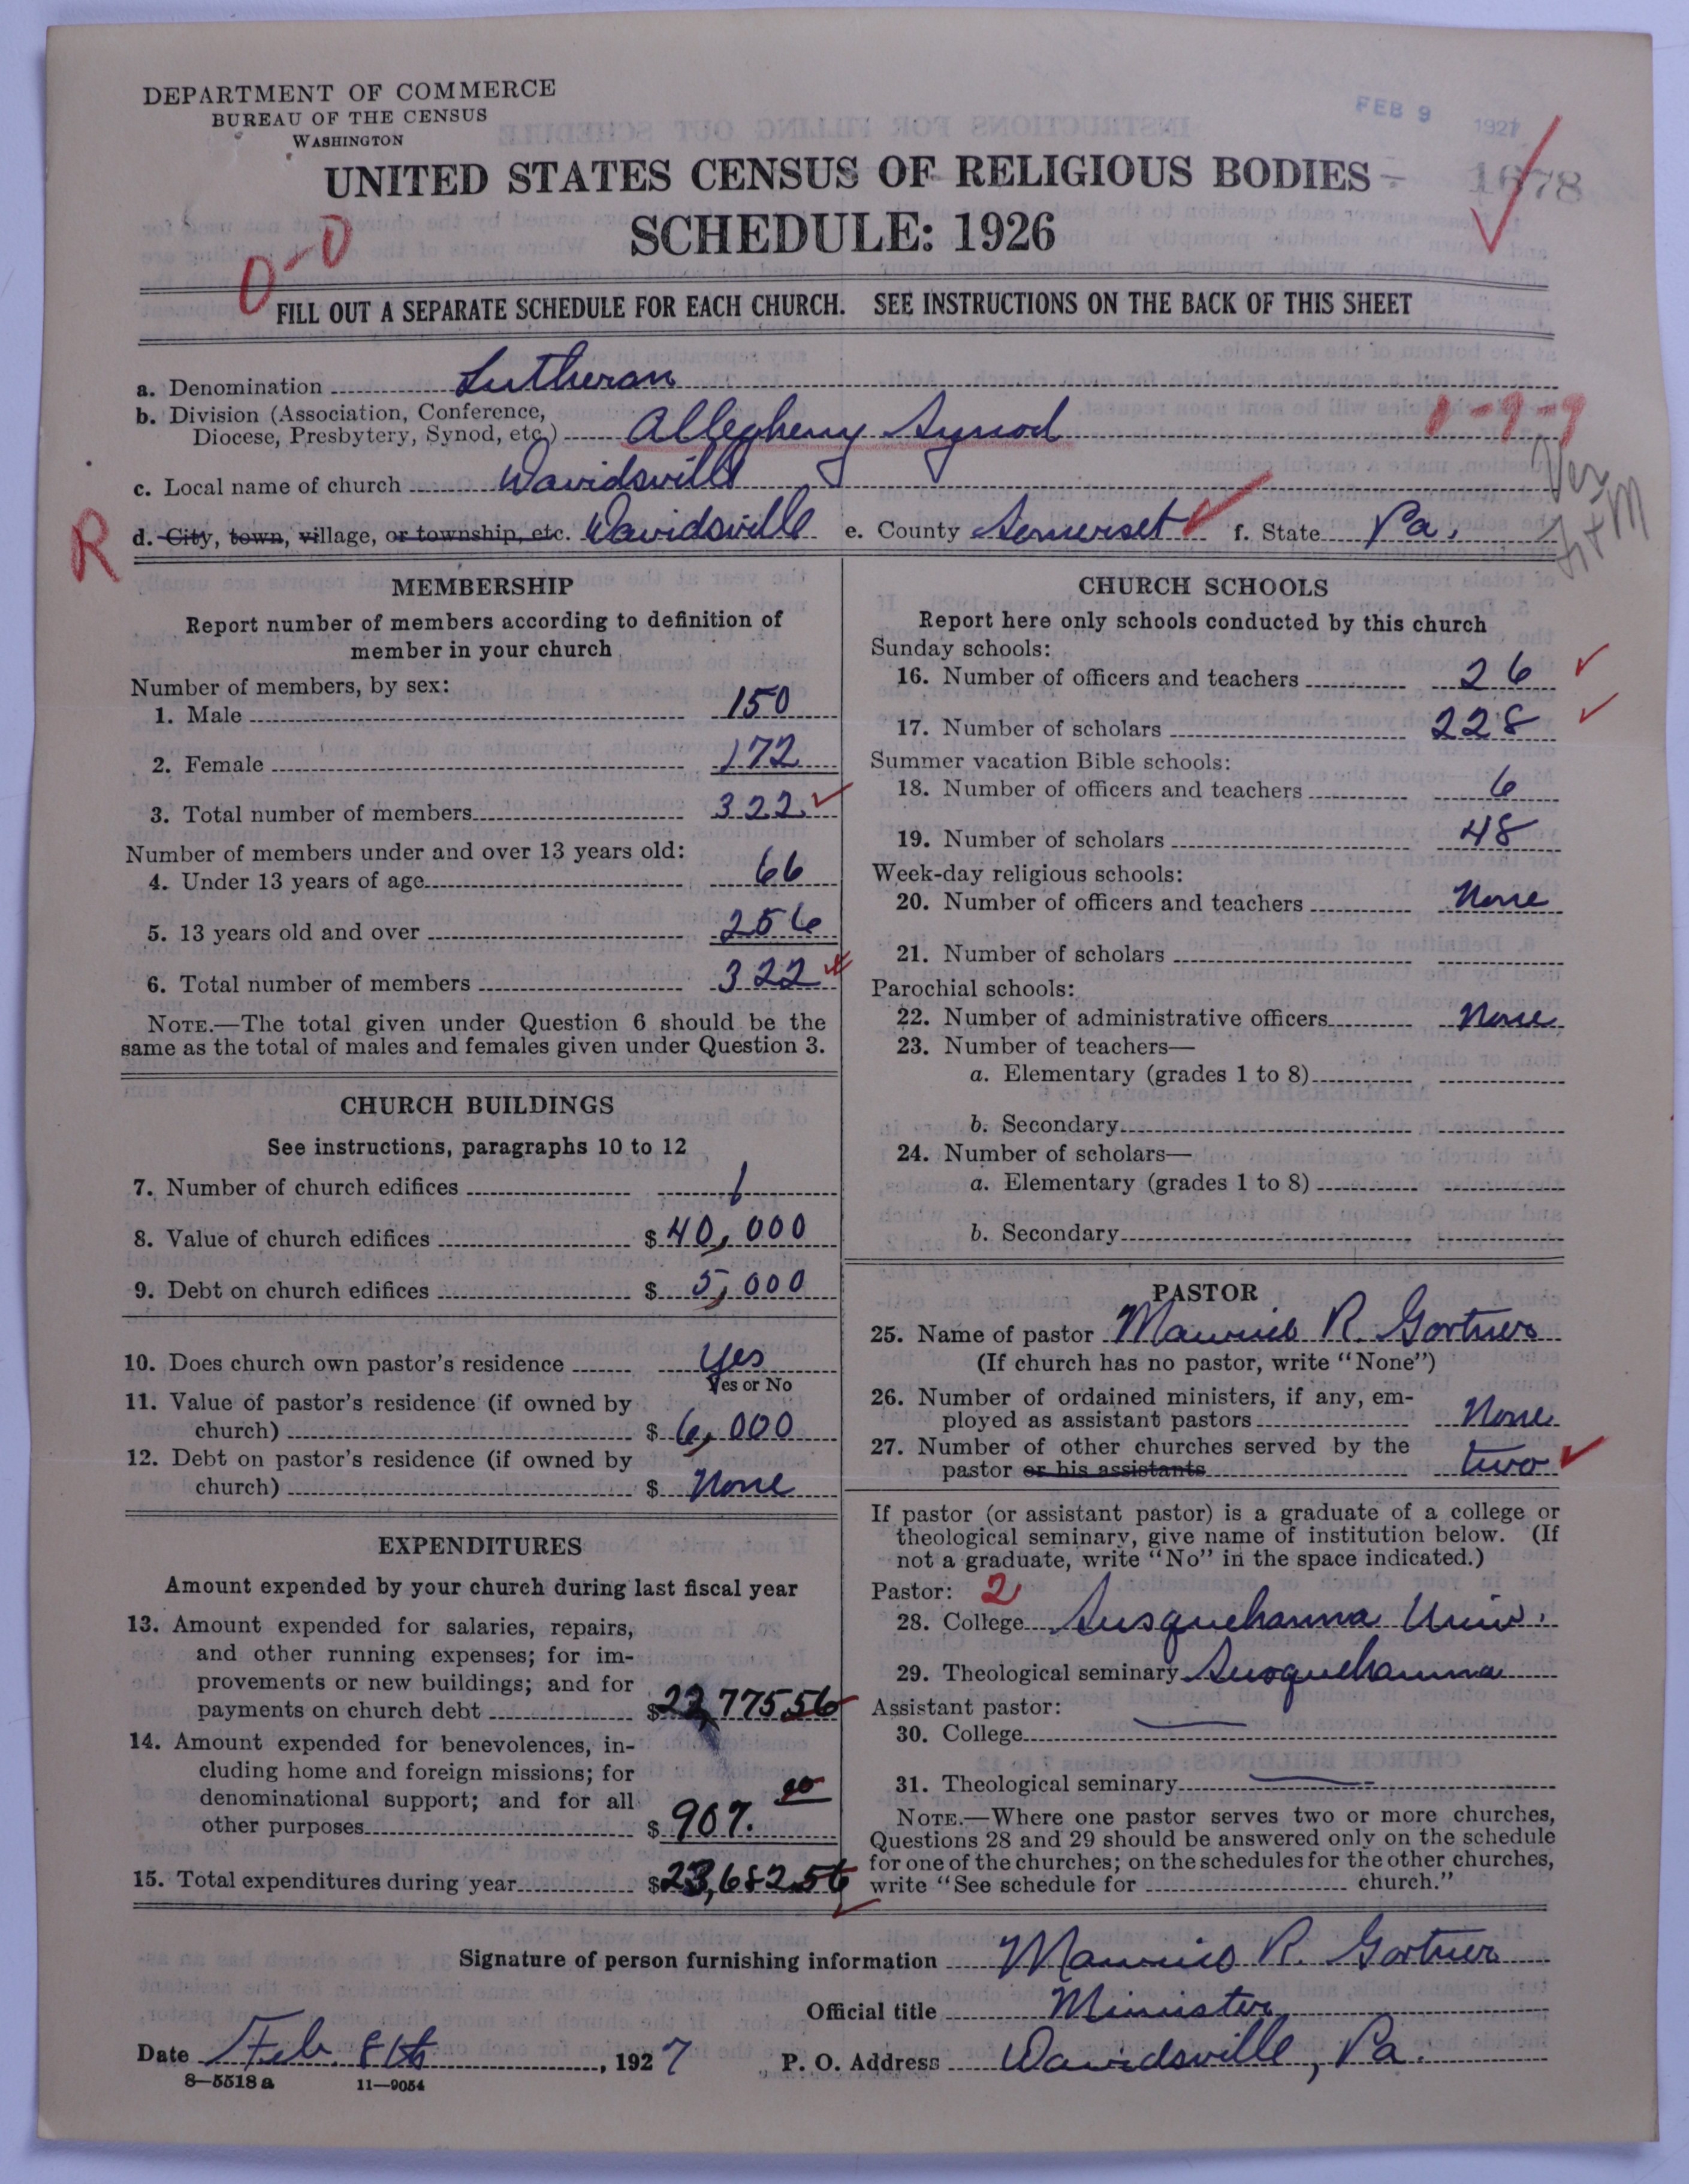 DEPARTMENT OF COMMERCE
BUREAU OF THE CENSUS
WASHINGTON
FEB 9 1927
UNITED STATES CENSUS OF RELIGIOUS BODIES
1678
SCHEDULE: 1926
0-0
FILL OUT A SEPARATE SCHEDULE FOR EACH CHURCH. SEE INSTRUCTIONS ON THE BACK OF THIS SHEET
a. Denomination Lutheran
b. Division (Association, Conference,
Diocese, Presbytery, Synod, etc.) Allegheny Synod
1-9-9
c. Local name of church Davidsville
R
d. City, town, village, or township, etc. Davidsville e. County Somerset f. State Pa.
MEMBERSHIP
Report number of members according to definition of
member in your church
Number of members, by sex:
1. Male 150
2. Female 172
3. Total number of members 322
Number of members under and over 13 years old:
4. Under 13 years of age 66
5. 13 years old and over 256
6. Total number of members 322
NOTE.—The total given under Question 6 should be the
same as the total of males and females given under Question 3.
CHURCH BUILDINGS
See instructions, paragraphs 10 to 12
7. Number of church edifices 1
8. Value of church edifices $ 40,000
9. Debt on church edifices $ 5,000
10. Does church own pastor's residence Yes
Yes or No
11. Value of pastor's residence (if owned by
church) $ 6,000
12. Debt on pastor's residence (if owned by
church) $ None
EXPENDITURES
Amount expended by your church during last fiscal year
13. Amount expended for salaries, repairs,
and other running expenses; for im-
provements or new buildings; and for
payments on church debt $ 22,775 56
14. Amount expended for benevolences, in-
cluding home and foreign missions; for
denominational support; and for all
other purposes $ 907. 00
15. Total expenditures during year $ 23,682.56
CHURCH SCHOOLS
Report here only schools conducted by this church
Sunday schools:
16. Number of officers and teachers 26
17. Number of scholars 228
Summer vacation Bible schools:
18. Number of officers and teachers 6
19. Number of scholars 48
Week-day religious schools:
20. Number of officers and teachers None
21. Number of scholars
Parochial schools:
22. Number of administrative officers None
23. Number of teachers—
a. Elementary (grades 1 to 8)
b. Secondary
24. Number of scholars—
a. Elementary (grades 1 to 8)
b. Secondary
PASTOR
25. Name of pastor Maurice R. Gortner
(If church has no pastor, write "None")
26. Number of ordained ministers, if any, em-
ployed as assistant pastors None
27. Number of other churches served by the
pastor or his assistants two
If pastor (or assistant pastor) is a graduate of a college or
theological seminary, give name of institution below. (If
not a graduate, write "No" in the space indicated.)
Pastor: 2
28. College Susquehanna Univ.
29. Theological seminary Susquehanna
Assistant pastor:
30. College
31. Theological seminary
NOTE.—Where one pastor serves two or more churches,
Questions 28 and 29 should be answered only on the schedule
for one of the churches; on the schedules for the other churches,
write "See schedule for church."
Signature of person furnishing information Maurice R. Gortner
Official title Minister
Date Feb. 8th, 1927 P. O. Address Davidsville, Pa.
8—5518 a 11—9054